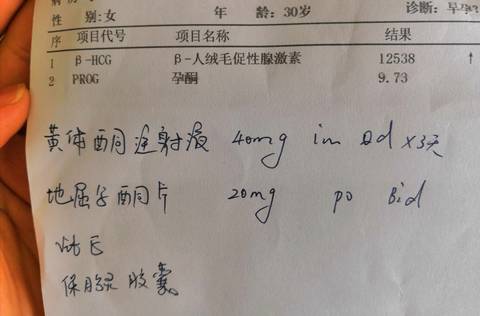 性 别:女 年 龄:30岁 诊断:早孕
序 项目代号 项目名称 结果
1 β-HCG β-人绒毛促性腺激素 12538 ↑
2 PROG 孕酮 9.73
黄体酮注射液 40mg im Qd ×3天
地屈孕酮片 20mg po Bid
保胎灵胶囊